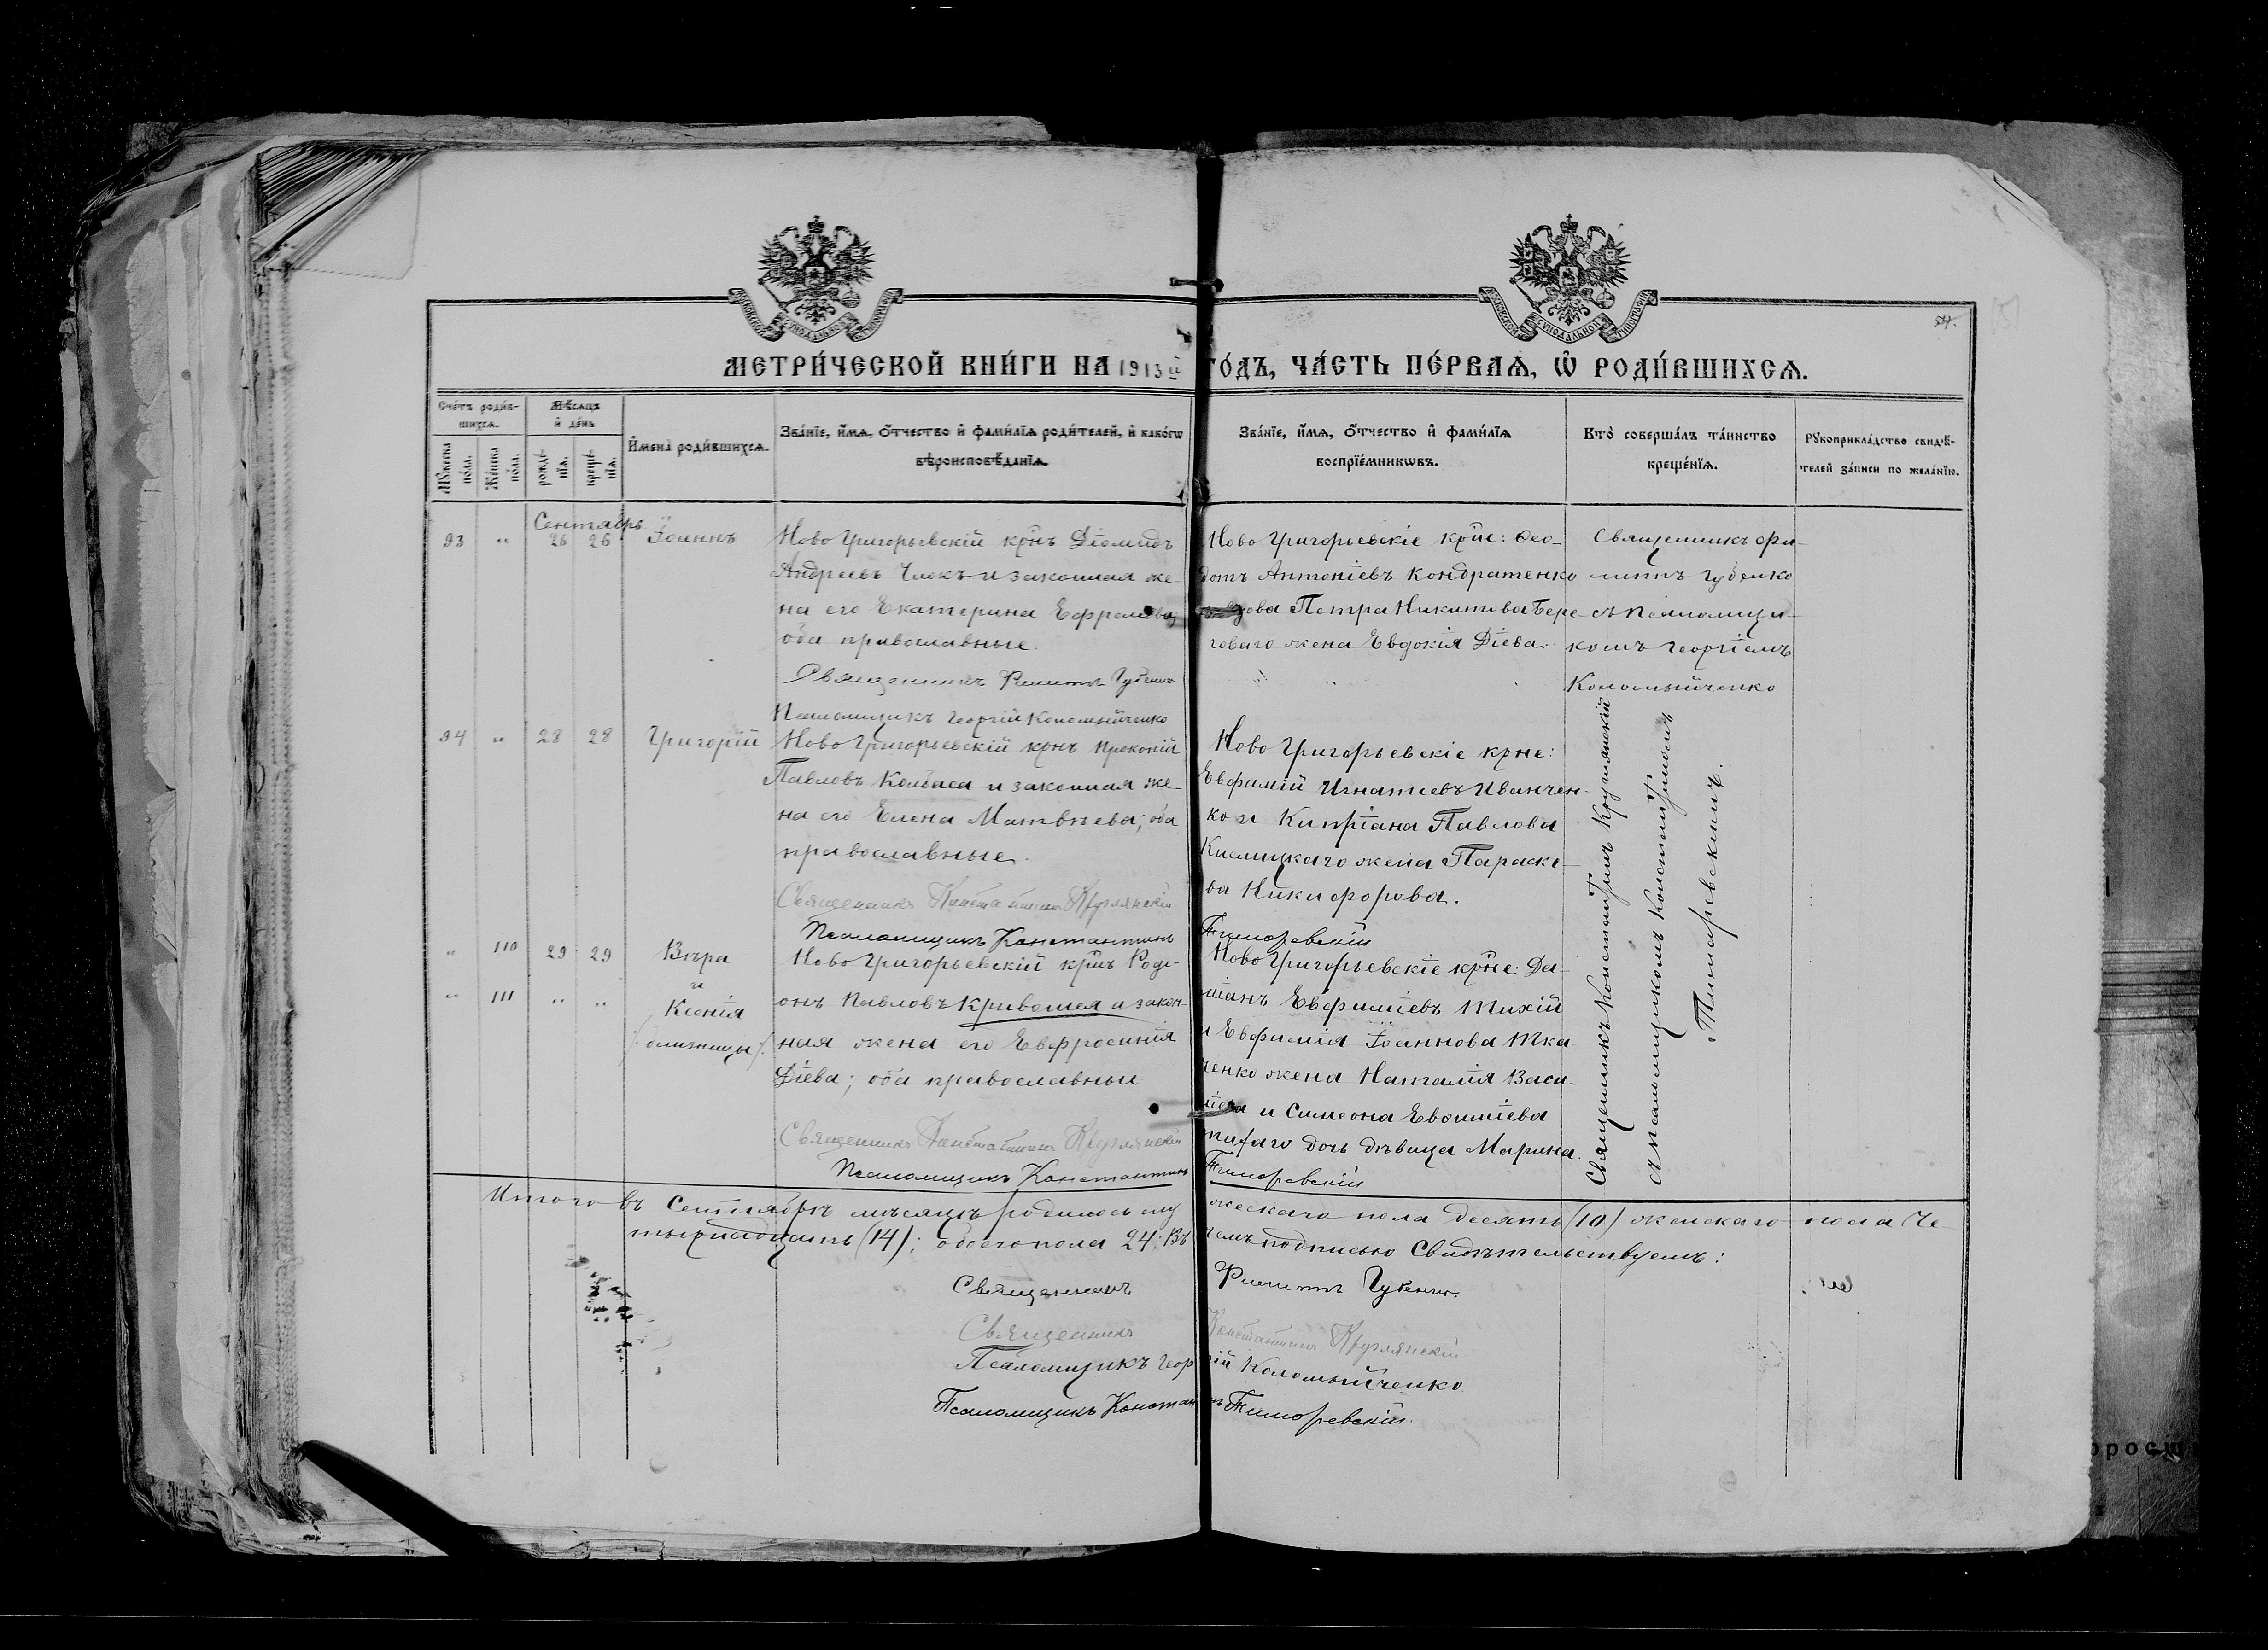 54.
МЕТРИ́ЧЕСКОЙ КНИ́ГИ НА 1913й ГО́ДЪ, ЧА́СТЬ ПЕ́РВАѦ, Ѡ҆ РОДИ́ВШИХСѦ.
Сче́тъ роди́в-
шихсѧ.
Мꙋ́жеска по́ла.
Же́нска по́ла.
Мѣ́сѧцъ
и҆ де́нь
рожде́нїѧ.
креще́нїѧ.
И҆мена̀ роди́вшихсѧ.
Зва́нїе, и҆́мѧ, ѻ҆́тчество и҆ фами́лїѧ роди́телей, и҆ како́гѡ
вѣроисповѣ́данїѧ.
Зва́нїе, и҆́мѧ, ѻ҆́тчество и҆ фами́лїѧ
воспрїе́мникѡвъ.
Кто̀ соверша́лъ та́инство
креще́нїѧ.
Рꙋкоприкла́дство свидѣ́-
телей за́писи по жела́нїю.
Сентябрь
93 " 26 26 Іоаннъ
Ново Григорьевскій крнъ Діомидъ
Андреевъ Члекъ и законная же-
на его Екатерина Ефремова;
оба православные.
Священникъ Филиппъ Губенко
Псаломщикъ Георгій Коломыйченко
Ново Григорьевскіе крне: Ѳео-
дотъ Антоніевъ Кондратенко
Петра Никитова Бере-
говаго жена Евдокія Діева.
Священникъ Фи-
липпъ Губенко
съ Псаломщи-
комъ Георгіемъ
Коломыйченко
94 " 28 28 Григорій
Ново Григорьевскій крнъ Прокопій
Павловъ Колбаса и законная же-
на его Елена Матвѣева; оба
православные.
Священникъ Константинъ Круглянскій
Псаломщикъ Константинъ Тиморевскій
Ново Григорьевскіе крне:
Евфимій Игнатіевъ Иванчен-
ко и Кипріана Павлова
Кислицкаго жена Параске-
ва Никифорова.
" 110 29 29 Вѣра
и
" 111 " " Ксенія
/: близницы :/
Ново Григорьевскій крнъ Роди-
онъ Павловъ Кривошея и закон-
ная жена его Евфросинія
Діева; оба православные
Священникъ Константинъ Круглянскій
Псаломщикъ Константинъ Тиморевскій
Ново Григорьевскіе крне: Да-
міанъ Евфиміевъ Тихій
и Евфимія Іоаннова Тка-
ченко жена Наталія Васи-
ліева и Симеона Евфиміева
дочь дѣвица Марина.
Священникъ Константинъ Круглянскій
съ псаломщикомъ Константиномъ
Тиморевскимъ.
Итого въ Сентябрѣ мѣсяцѣ родилось мужескаго пола десять (10) женскаго пола че-
тырнадцать (14); обоего пола 24. Въ чемъ подписью свидѣтельствуемъ:
Священникъ Филиппъ Губенко.
Священникъ Константинъ Круглянскій
Псаломщикъ Георгій Коломыйченко
Псаломщикъ Константинъ Тиморевскій.